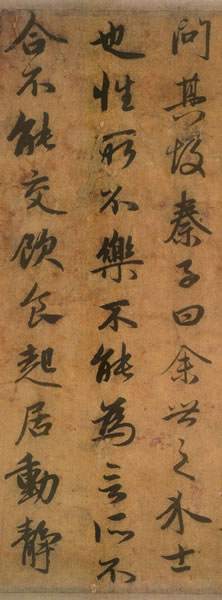 問其故秦子曰余世之介士
也性所不樂不能為言所不
合不能交飲食起居動靜